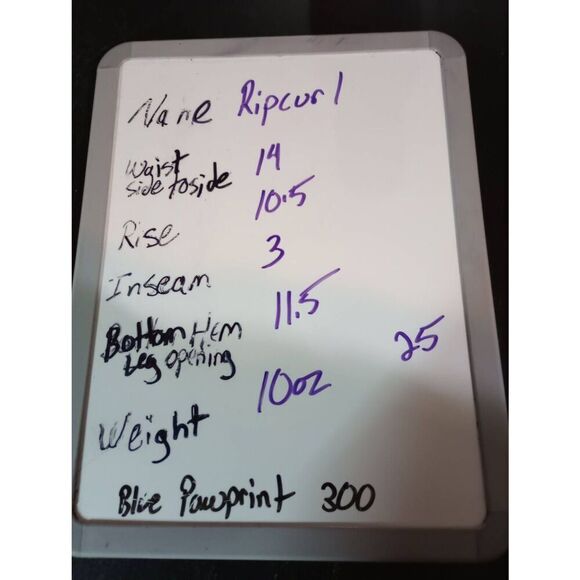 Name Ripcurl
Waist 14
side to side
10.5
Rise
3
Inseam
11.5
Bottom Hem
Leg opening
25
10oz
Weight
Blue Pawprint 300